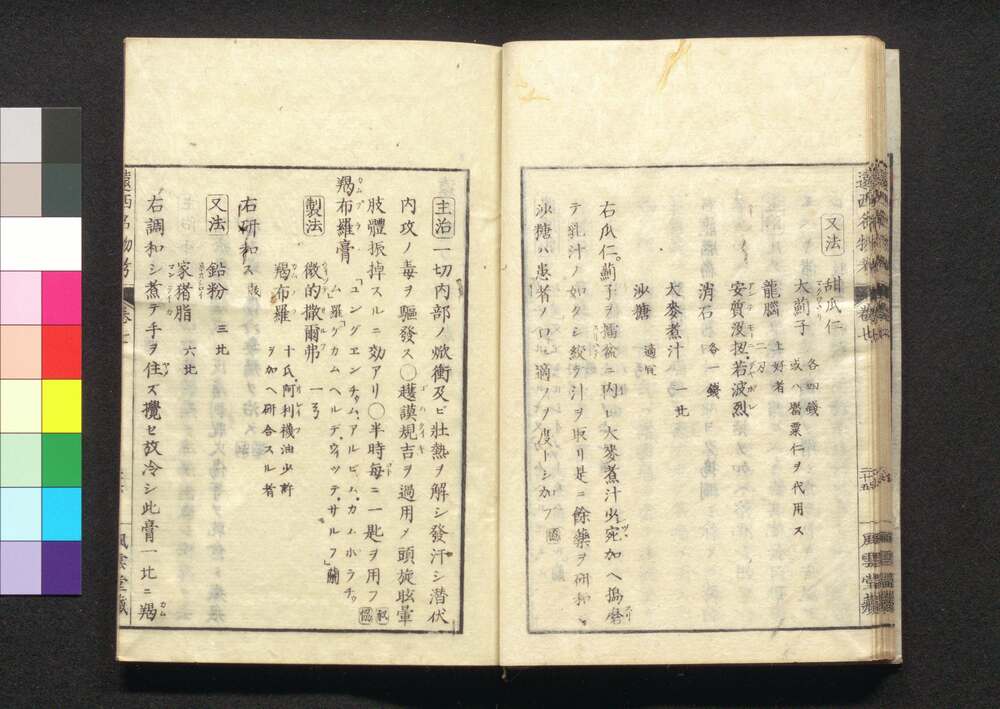 又法
甜瓜仁
大薊子 各四錢 或ハ罌粟仁ヲ代用ス
龍腦 上好者 二刃
安質没扭若波烈
消石 各一錢
大麥煮汁 一
沙糖 適宜
右瓜仁薊子ヲ擂盆ニ内レ大麥煮汁少宛加ヘ搗磨
テ乳汁ノ如クシ絞テ汁ヲ取リ是ニ餘藥ヲ研和ス
沙糖ハ患者ノ口ニ適フヲ度トシ加フ
遠西名物考
風雲堂藏
主治 一切内部ノ焮衝及ビ壯熱ヲ解シ發汗シ潜伏
内攻ノ毒ヲ驅發ス〇越謨規吉ヲ過用メ頭旋眩暈
肢體振掉スルニ効アリ〇半時毎ニ一匙ヲ用フ
羯布羅膏 「ユングエンチュム、アルビュム、カムホラチュム」羅「ゲカムヘルデ、ウィッテ、サルフ」蘭
製法 微的撒爾弗 一
羯布羅 十氏 阿利襪油少許ヲ加ヘ研合スル者
右研和ス
又法 鉛粉 三
家猪脂 六
右調和シ煮テ手ヲ住ズ攪セ放冷シ此膏一ニ羯
遠西名物考
風雲堂藏